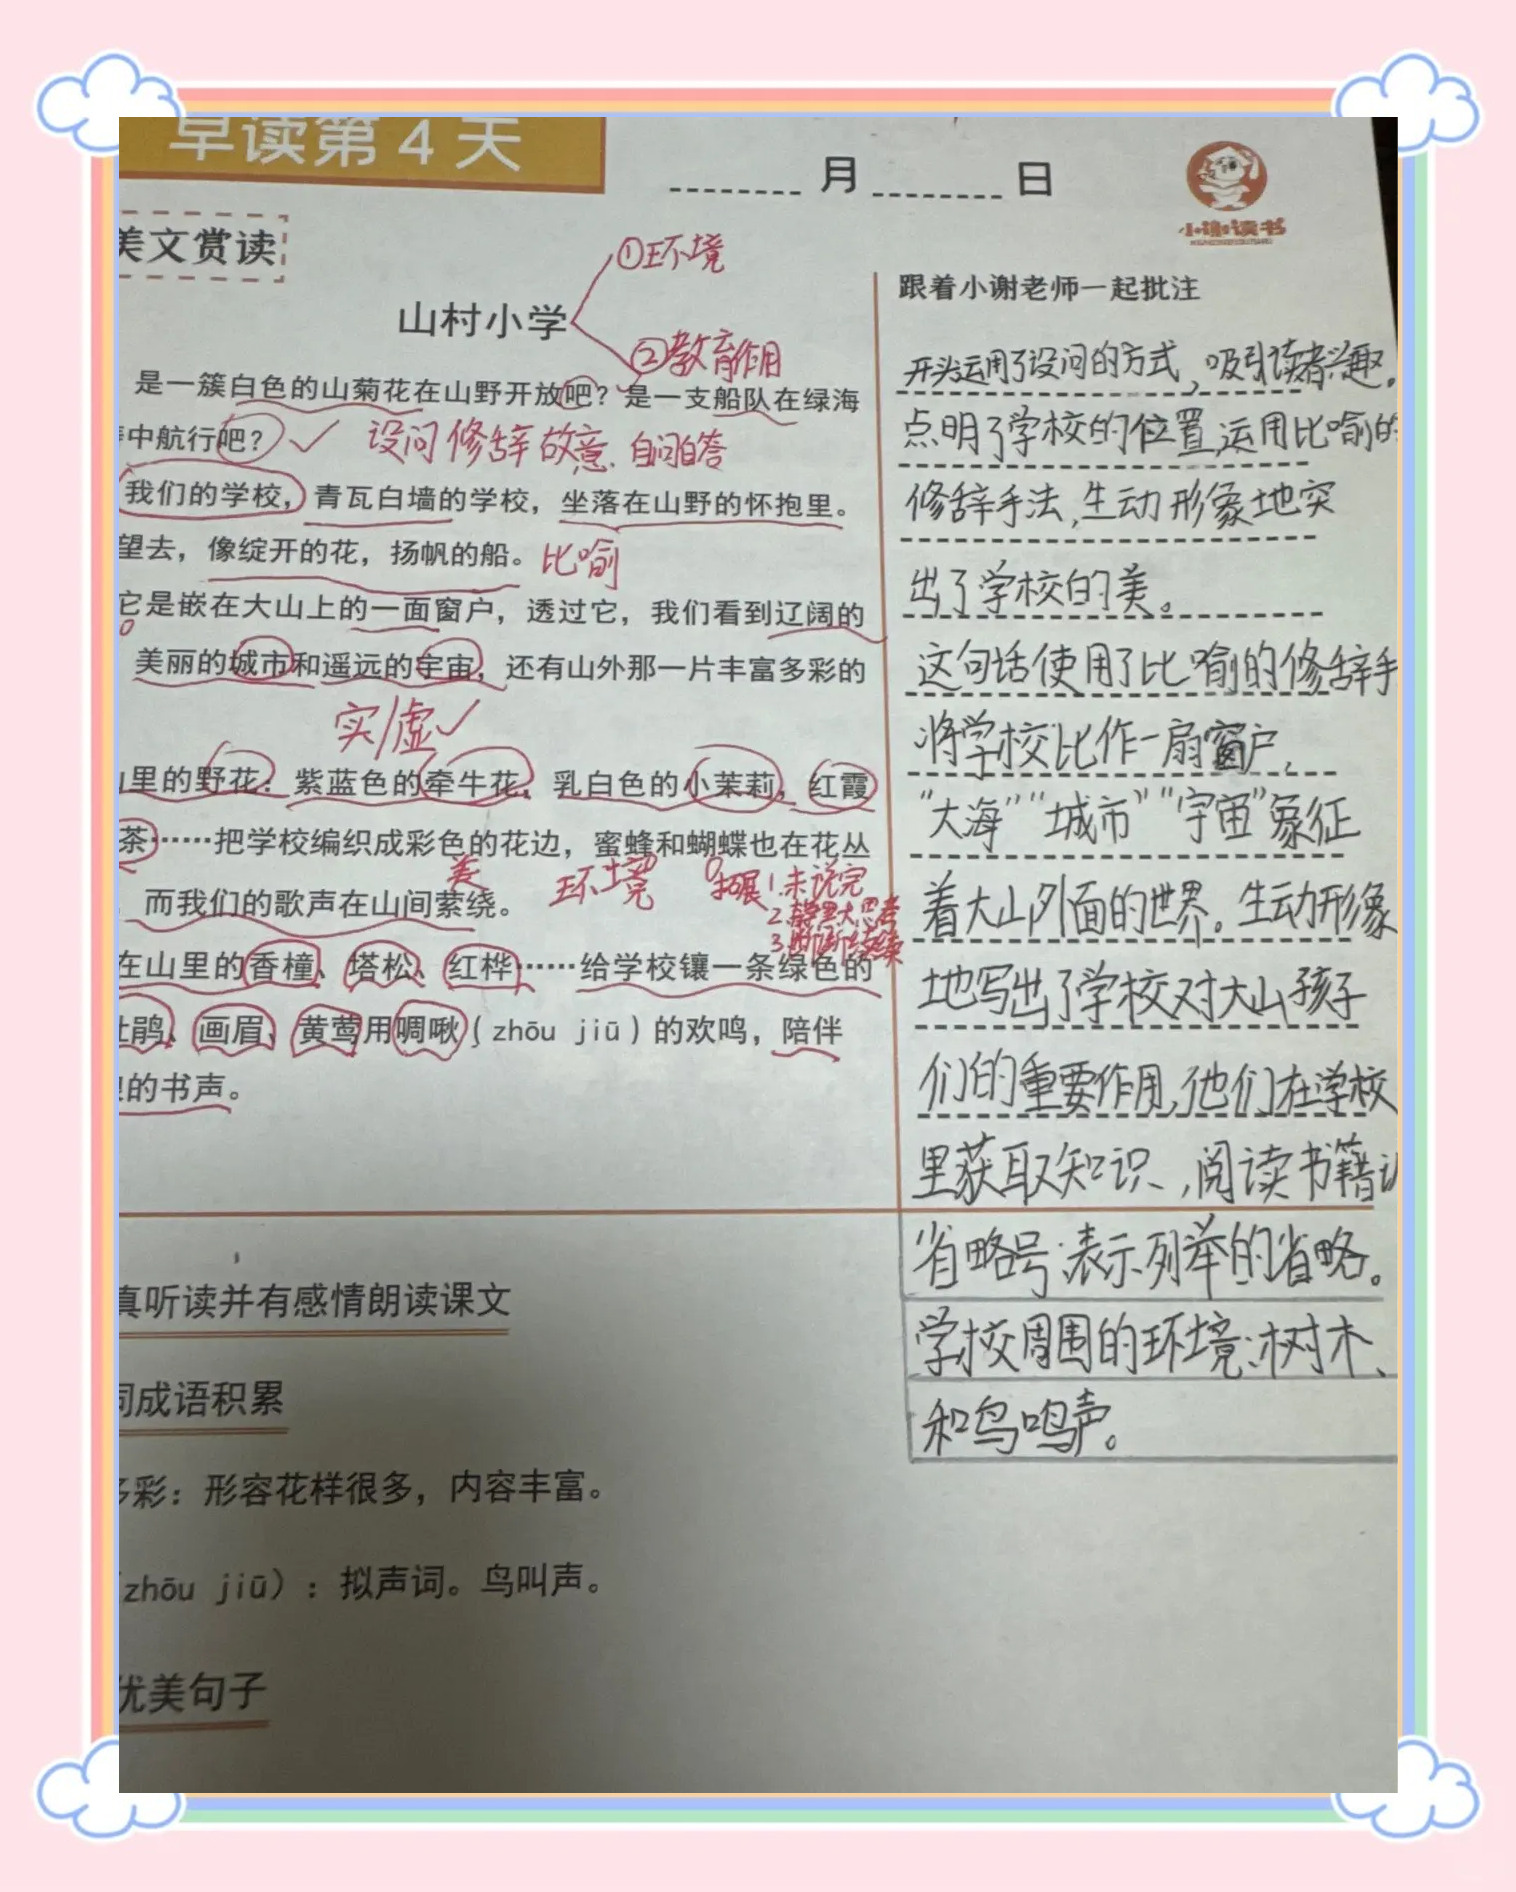 早读第4天
月 日
小谢读书
美文赏读
①环境
山村小学
②教育作用
是一簇白色的山菊花在山野开放吧？是一支船队在绿海
中航行吧？
设问修辞 故意 自问自答
我们的学校，青瓦白墙的学校，坐落在山野的怀抱里。
望去，像绽开的花，扬帆的船。
比喻
它是嵌在大山上的一面窗户，透过它，我们看到辽阔的
美丽的城市和遥远的宇宙，还有山外那一片丰富多彩的
实/虚
里的野花：紫蓝色的牵牛花，乳白色的小茉莉，红霞
茶……把学校编织成彩色的花边，蜜蜂和蝴蝶也在花丛
美 环境 拓展 1.未说完
而我们的歌声在山间萦绕。
3.断断续续
在山里的香橦、塔松、红桦……给学校镶一条绿色的
鹃、画眉、黄莺用啁啾（zhōu jiū）的欢鸣，陪伴
的书声。
真听读并有感情朗读课文
词成语积累
多彩：形容花样很多，内容丰富。
（zhōu jiū）：拟声词。鸟叫声。
优美句子
跟着小谢老师一起批注
开头运用了设问的方式，吸引读者兴趣。
点明了学校的位置，运用比喻的
修辞手法，生动形象地突
出了学校的美。
这句话使用了比喻的修辞手
将学校比作一扇窗户，
“大海”“城市”“宇宙”象征
着大山外面的世界。生动形象
地写出了学校对大山孩子
们的重要作用，他们在学校
里获取知识，阅读书籍
省略号：表示列举的省略。
学校周围的环境：树木、
和鸟鸣声。